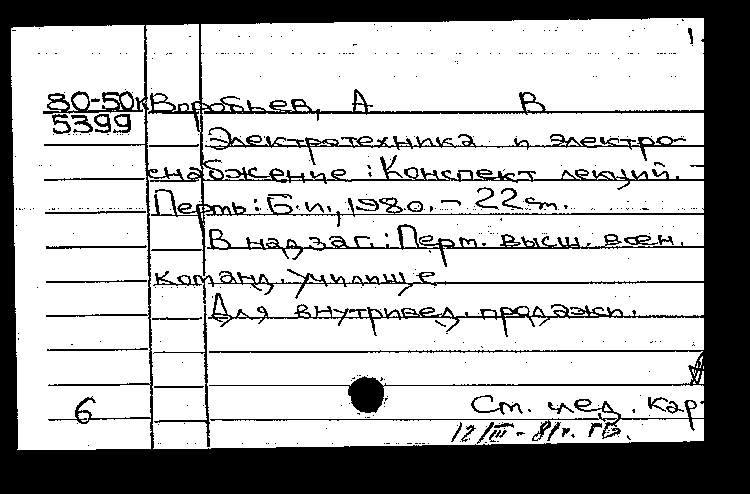 1.
80-50к Воробьев, А В
5399
Электротехника и электро-
снабжение : Конспект лекций. -
Пермь : Б.и., 1980. - 22 ст.
В надзаг. : Перм. высш. воен.
команд. училище
Для внутривед. продажи.
6 Ст. след. кар
12/III - 81г. ГВ.